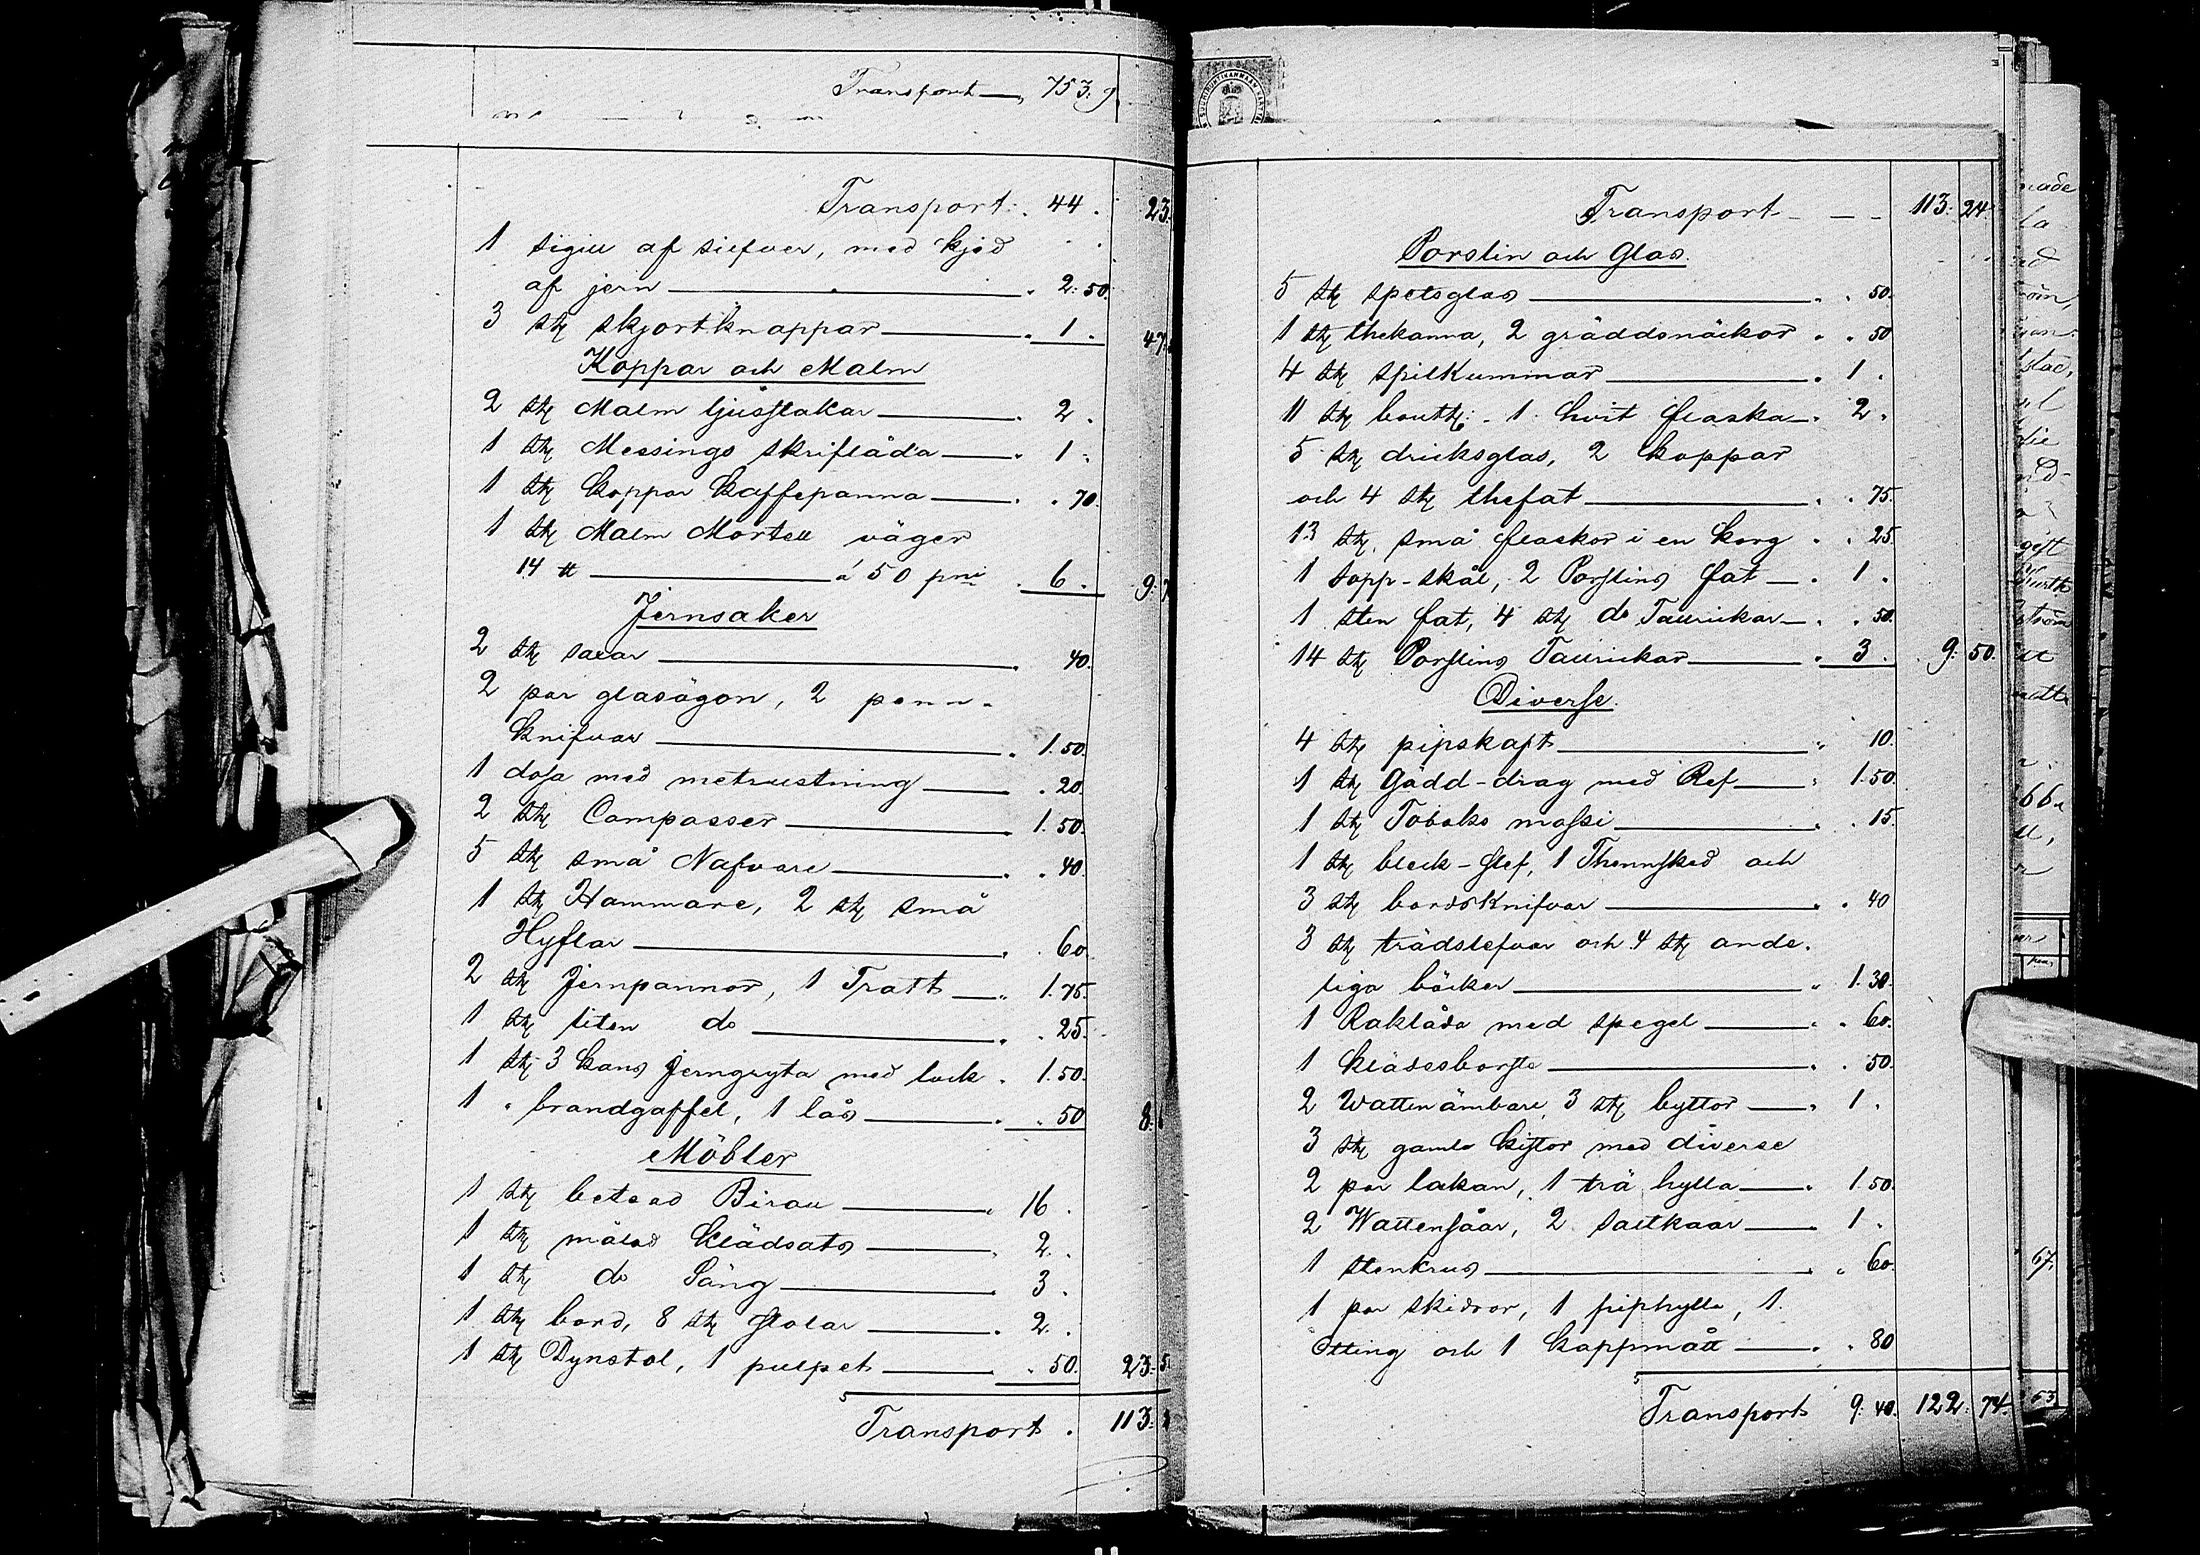 Transport 753. 9
Transport. 44. 23.
1 sigill af silfver, med kjed
af jern 2.50.
3 stk skjortknappar 1. 47.
Koppar och Malm
2 stk Malm ljusstakar 2.
1 stk Messings skriflåda 1.
1 stk Koppar Kaffepanna 70.
1 stk Malm Mortell väger
14 ℔ á 50 pni 6. 9.7
Jernsaker
2 stk saxar 40.
2 par glasögon, 2 penn-
knifvar 1.50.
1 dosa med metrustning 20.
2 stk Compasser 1.50.
5 stk små Nafvare 40.
1 stk Hammare, 2 stk små
Hyflar 60.
2 stk Jernpannor, 1 Tratt 1.75.
1 stk liten do 25.
1 stk 3 kans Jerngryta med lock 1.50.
1 " brandgaffel, 1 lås 50 8.
Möbler
1 stk betsad Birau 16.
1 stk målad Klädsats 2.
1 stk do Säng 3.
1 stk bord, 8 stk stolar 2.
1 stk Dynstol, 1 pulpet 50. 23.5
Transport. 113.
Transport 113. 24.
Porslin och Glas.
5 stk spetsglas 50.
1 stk thekanna, 2 gräddsnäckor 50
4 stk spilkummar 1.
11 stk boutt: 1 hvit flaska 2.
5 stk dricksglas, 2 koppar
och 4 stk thefat 75.
13 stk. små flaskor i en korg 25.
1 sopp-skål, 2 Porslins fat 1.
1 sten fat, 4 stk do Taurickar 50.
14 stk Porslins Taurickar 3. 9.50.
Diverse.
4 stk pipskaft 10.
1 stk Gädd-drag med Ref 1.50.
1 stk Tobaks massi 15.
1 stk bleck-slef, 1 Thennsked och
3 stk bordsknifvar 40
3 stk trädslefvar och 4 stk ande-
liga böcker 1.30.
1 Raklåda med spegel 60.
1 Klädesborste 50.
2 Wattenämbare, 3 stk byttor 1.
3 stk gamla kistor med diverse
2 par lakan, 1 trä hylla 1.50.
2 Wattensåar, 2 saltkaar 1.
1 stenkrus 60.
1 par skidor, 1 piphylla, 1
Otting och 1 kappmått 80
Transport 9.40. 122. 74.